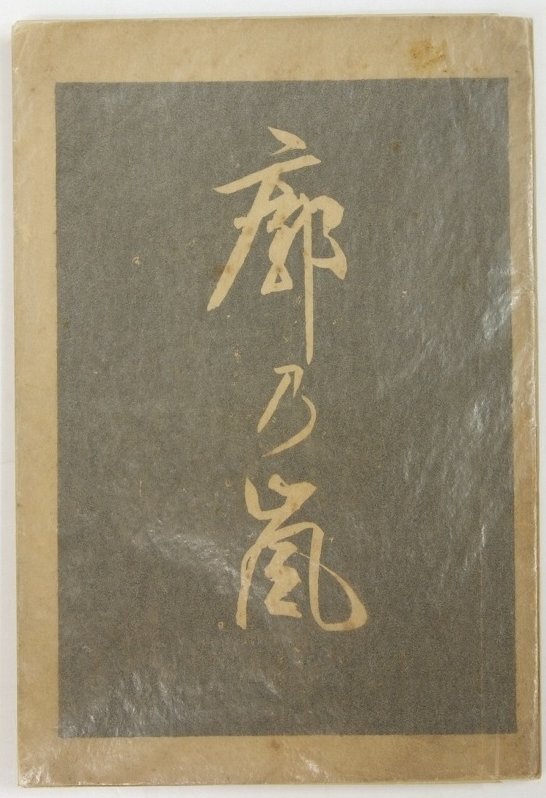 廓乃嵐